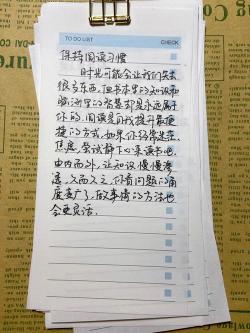 TO DO LIST CHECK
保持阅读习惯
时光可能会让我们失去
很多东西，但书本里的知识和
脑海里的智慧却是永远属于
你的，阅读是自我提升最便
捷的方式，如果你经常迷茫、
焦虑，尝试静下心来读书吧，
由内而外，让知识慢慢渗
透，久而久之，你看问题的角
度变广了，做事情的方法也
会更灵活。